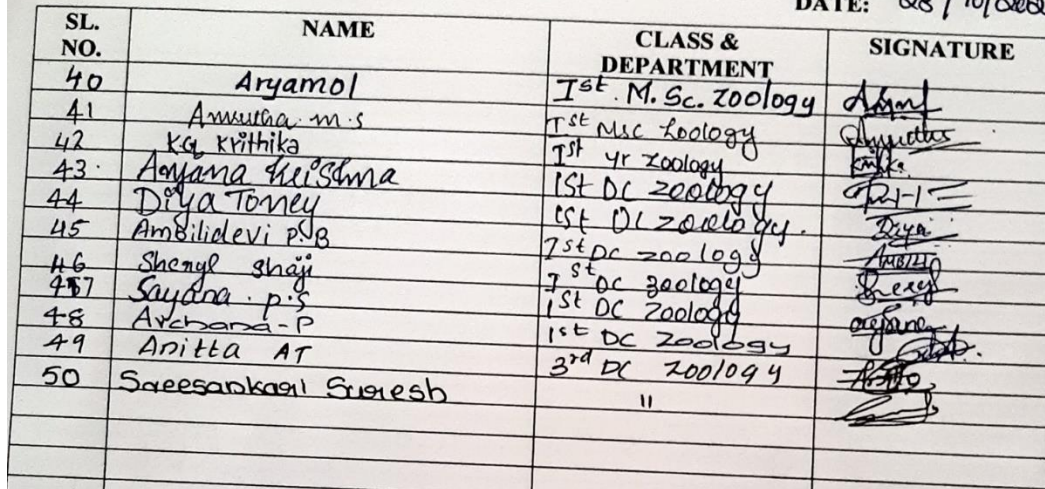 DATE: 28/10/202
SL. NO. NAME CLASS & DEPARTMENT SIGNATURE
40 Aryamol Ist. M.Sc. Zoology
41 Amrutha. m.s Ist Msc Zoology Amrutha
42 K.G Krithika Ist yr zoology
43. Anjana Krishna Ist DC zoology
44 Diya Tomey Ist DC zoology. Diya
45 Ambilidevi P.B Ist DC zoology Ambili
46 Sheryl Shaji Ist DC zoology Sheryl
47 Sayana. p.s Ist DC Zoology
48 Archana-P Ist DC Zoology
49 Anitta AT 3rd DC Zoology
50 Sreesankari Suresh "